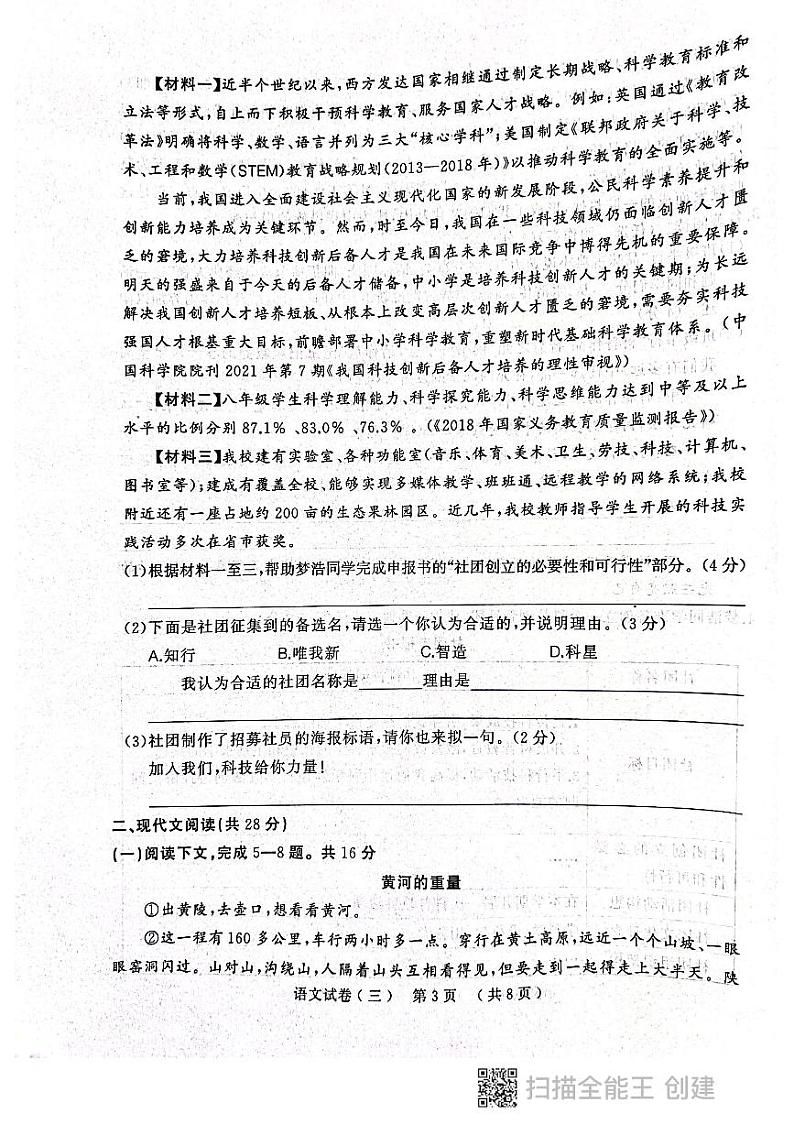 【材料一】近半个世纪以来,西方发达国家相继通过制定长期战略、科学教育标准和
立法等形式,自上而下积极干预科学教育、服务国家人才战略。例如:英国通过《教育改
革法》明确将科学、数学、语言并列为三大“核心学科”;美国制定《联邦政府关于科学、技
术、工程和数学(STEM)教育战略规划(2013—2018年)》以推动科学教育的全面实施等。
当前,我国进入全面建设社会主义现代化国家的新发展阶段,公民科学素养提升和
创新能力培养成为关键环节。然而,时至今日,我国在一些科技领域仍面临创新人才匮
乏的窘境,大力培养科技创新后备人才是我国在未来国际竞争中博得先机的重要保障。
明天的强盛来自于今天的后备人才储备,中小学是培养科技创新人才的关键期;为长远
解决我国创新人才培养短板、从根本上改变高层次创新人才匮乏的窘境,需要夯实科技
强国人才根基重大目标,前瞻部署中小学科学教育,重塑新时代基础科学教育体系。(中
国科学院院刊2021年第7期《我国科技创新后备人才培养的理性审视》)
【材料二】八年级学生科学理解能力、科学探究能力、科学思维能力达到中等及以上
水平的比例分别87.1%、83.0%、76.3%。(《2018年国家义务教育质量监测报告》)
【材料三】我校建有实验室、各种功能室(音乐、体育、美术、卫生、劳技、科技、计算机、
图书室等);建成有覆盖全校、能够实现多媒体教学、班班通、远程教学的网络系统;我校
附近还有一座占地约200亩的生态果林园区。近几年,我校教师指导学生开展的科技实
践活动多次在省市获奖。
(1)根据材料一至三,帮助梦浩同学完成申报书的“社团创立的必要性和可行性”部分。(4分)
(2)下面是社团征集到的备选名,请选一个你认为合适的,并说明理由。(3分)
A.知行 B.唯我新 C.智造 D.科星
我认为合适的社团名称是 理由是
(3)社团制作了招募社员的海报标语,请你也来拟一句。(2分)
加入我们,科技给你力量!
二、现代文阅读(共28分)
(一)阅读下文,完成5—8题。共16分
黄河的重量
①出黄陵,去壶口,想看看黄河。
②这一程有160多公里,车行两小时多一点。穿行在黄土高原,远近一个个山坡、一眼
眼窑洞闪过。山对山,沟绕山,人隔着山头互相看得见,但要走到一起得走上大半天。陕
语文试卷(三) 第3页 (共8页)
扫描全能王 创建